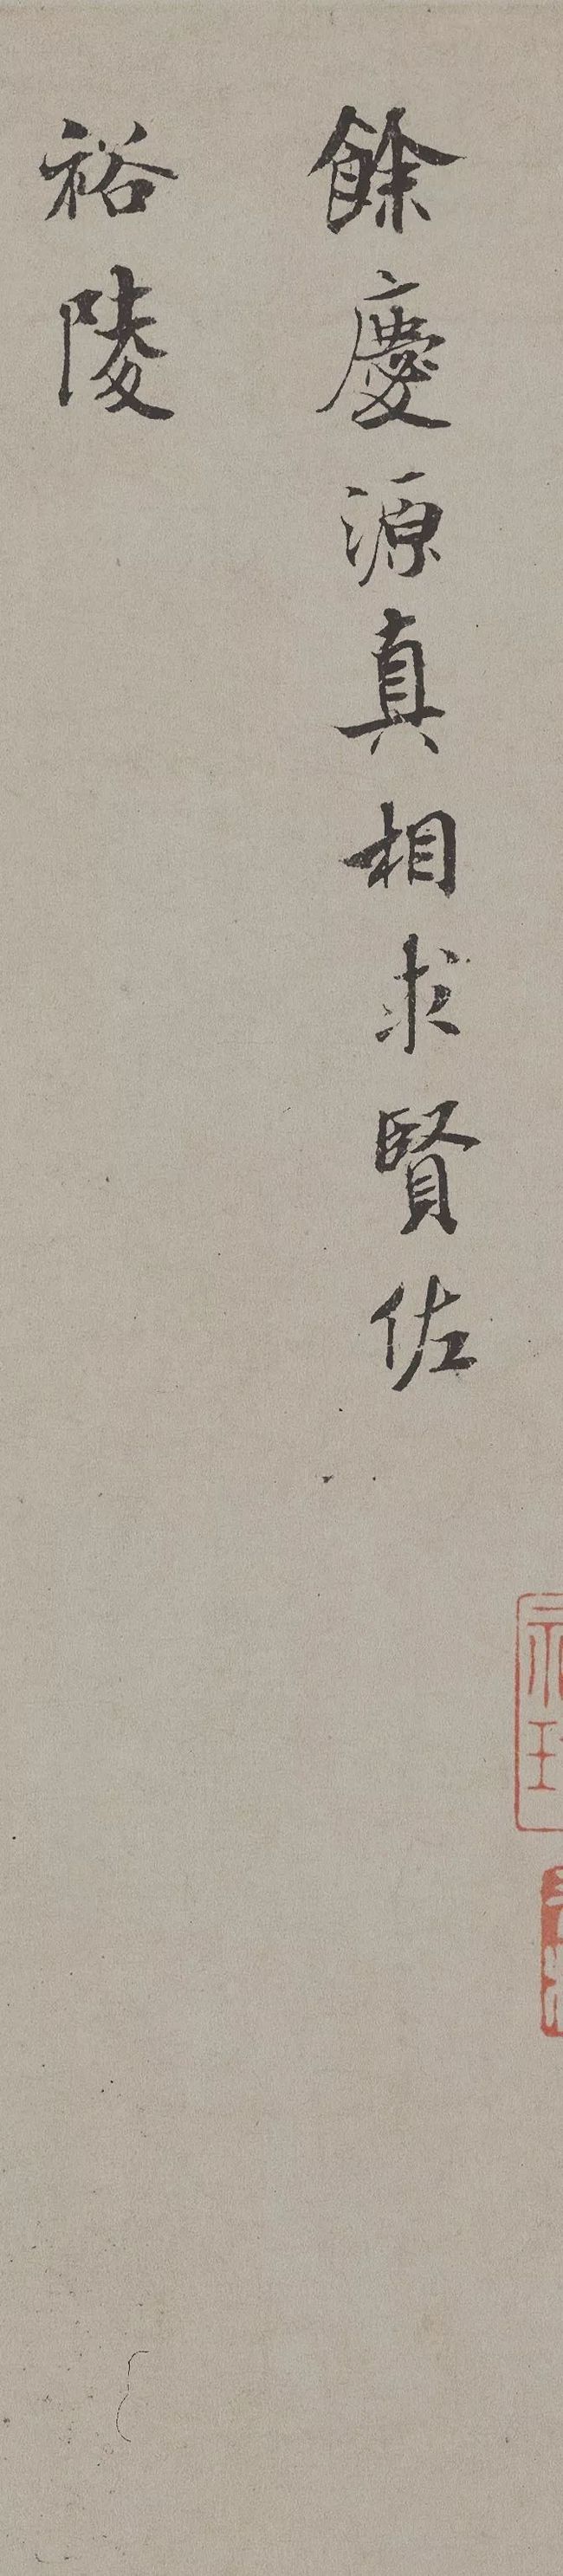 餘慶源真相求賢佐
裕陵